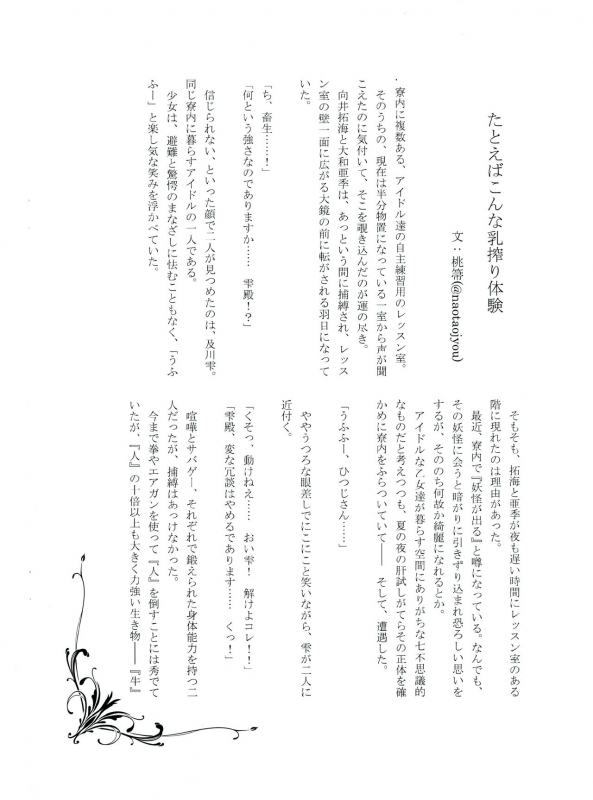 たとえばこんな乳搾り体験
文：桃箒(@naotaojyou)
．寮内に複数ある、アイドル達の自主練習用のレッスン室。
そのうちの、現在は半分物置になっている一室から声が聞
こえたのに気付いて、そこを覗き込んだのが運の尽き。
向井拓海と大和亜季は、あっという間に捕縛され、レッス
ン室の壁一面に広がる大鏡の前に転がされる羽目になって
いた。
「ち、畜生……！」
「何という強さなのでありますか…… 雫殿！？」
信じられない、といった顔で二人が見つめたのは、及川雫。
同じ寮内に暮らすアイドルの一人である。
少女は、避難と驚愕のまなざしに怯むこともなく、「うふ
ふー」と楽し気な笑みを浮かべていた。
そもそも、拓海と亜季が夜も遅い時間にレッスン室のある
階に現れたのは理由があった。
最近、寮内で『妖怪が出る』と噂になっている。なんでも、
その妖怪に会うと暗がりに引きずり込まれ恐ろしい思いを
するが、そののち何故か綺麗になれるとか。
アイドルな乙女達が暮らす空間にありがちな七不思議的
なものだと考えつつも、夏の夜の肝試しがてらその正体を確
かめに寮内をふらついていて―― そして、遭遇した。
「うふふー、ひつじさん……」
ややうつろな眼差しでにこにこと笑いながら、雫が二人に
近付く。
「くそっ、動けねえ…… おい雫！ 解けよコレ！！」
「雫殿、変な冗談はやめるであります…… くっ！」
喧嘩とサバゲー、それぞれで鍛えられた身体能力を持つ二
人だったが、捕縛はあっけなかった。
今まで拳やエアガンを使って『人』を倒すことには秀でて
いたが、『人』の十倍以上も大きく力強い生き物――『牛』